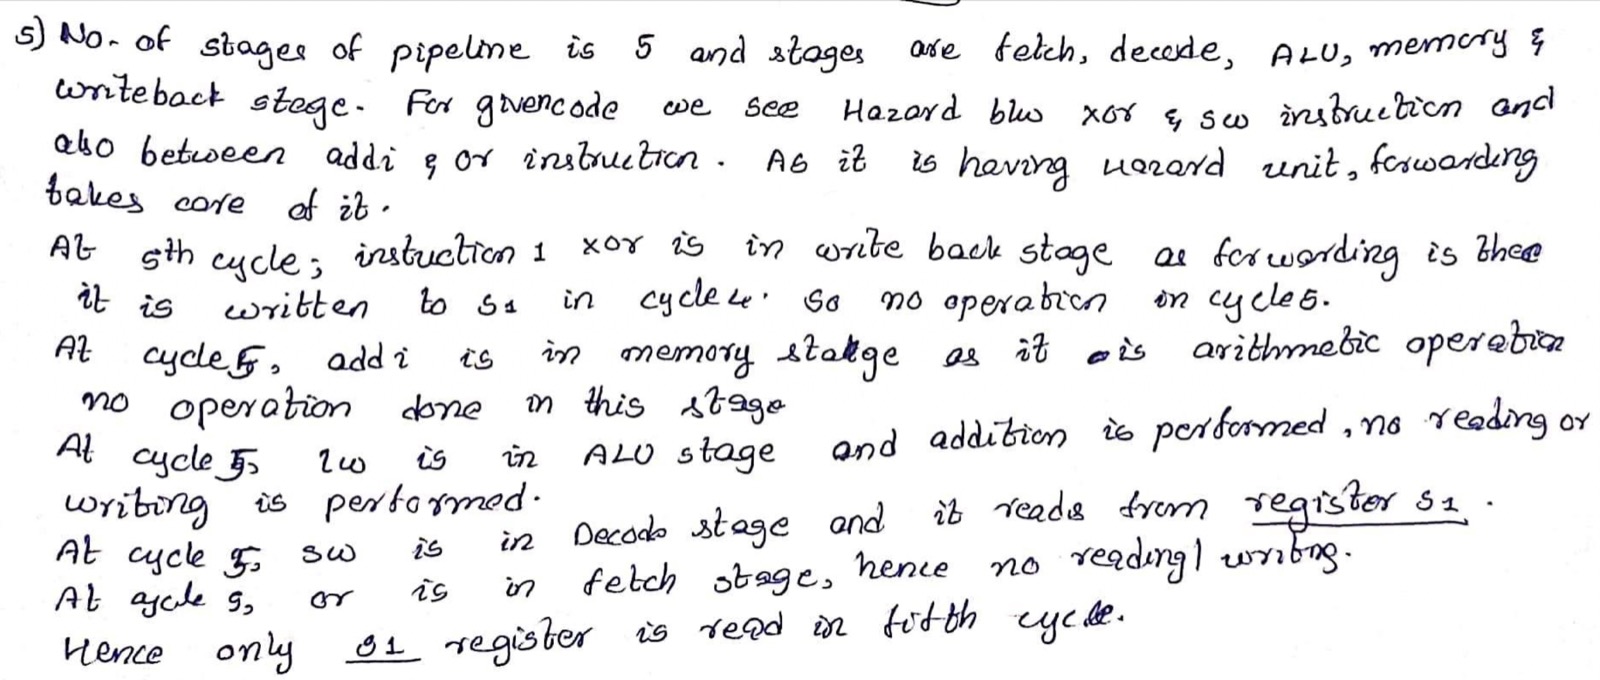 5) No. of stages of pipeline is 5 and stages are fetch, decode, ALU, memory &
writeback stage. For given code we see Hazard b/w xor & sw instruction and
also between addi & or instruction. As it is having Hazard unit, forwarding
takes care of it.
At 5th cycle; instuction 1 xor is in write back stage as forwarding is there
it is written to s1 in cycle 4. So no operation in cycle 5.
At cycle 5, addi is in memory statge as it is arithmetic operation
no operation done in this stage
At cycle 5, lw is in ALU stage and addition is performed, no reading or
writing is performed.
At cycle 5, sw is in Decode stage and it reads from register s1.
At cycle 5, or is in fetch stage, hence no reading/ writing.
Hence only s1 register is read in fifth cycle.